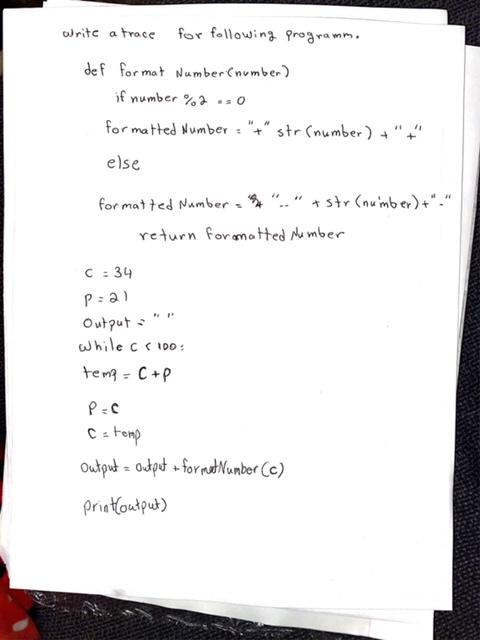 Write a trace for following programm.
def format Number(number)
if number %2 == 0
formatted Number = "+" str (number) + "+"
else
formatted Number = "-- " + str (number) + "-"
return formatted Number
C = 34
P = 21
Output = " "
While C < 100:
temp = C + P
P = C
C = temp
Output = Output + formatNumber (C)
print(output)